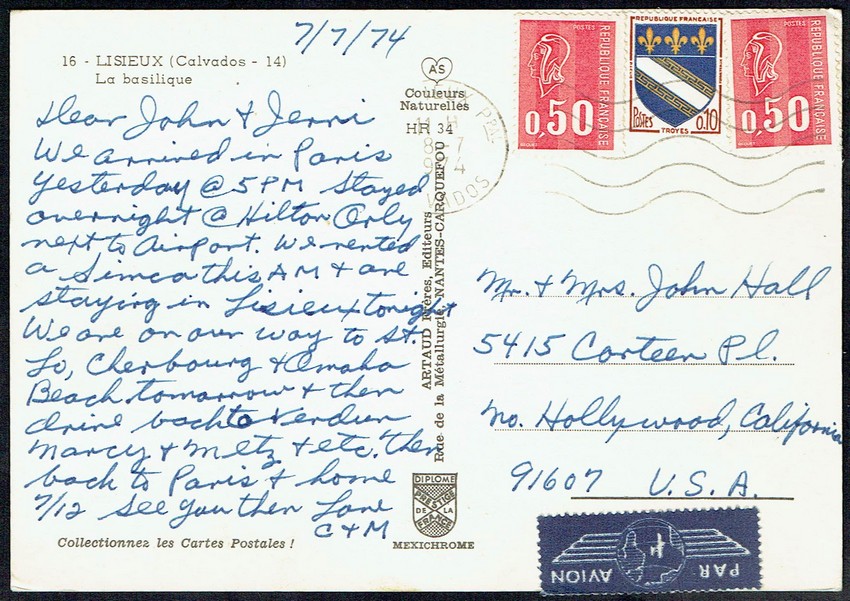 7/7/74
16 - LISIEUX (Calvados - 14)
La basilique
Dear John & Jerri
We arrived in Paris
yesterday @ 5 PM Stayed
overnight @ Hilton Orly
next to Airport. We rented
a Simca this AM & are
staying in Lisieux tonight
We are on our way to St.
Lo, Cherbourg & Omaha
Beach tomorrow & then
drive back to Verdun
Marcy & Metz & etc. then
back to Paris & home
7/12 See you then Love
C & M
Collectionnez les Cartes Postales !
AS
Couleurs
Naturelles
HR 34
ARTAUD Frères, Editeurs
Rue de la Métallurgie NANTES-CARQUEFOU
DIPLOME
PRESTIGE
DE LA
FRANCE
MEXICHROME
POSTES
REPUBLIQUE FRANÇAISE
0,50
REPUBLIQUE FRANÇAISE
Postes
0,10
TROYES
POSTES
REPUBLIQUE FRANÇAISE
0,50
PPAL
11 H
8 7
VADOS
Mr. & Mrs. John Hall
5415 Corteen Pl.
No. Hollywood, California
91607 U.S.A.
PAR AVION